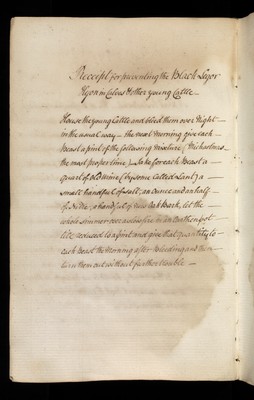 Receipt for preventing the Black Legor
Hyon in Calves & other young Cattle
House the young Cattle and bleed them over Night
in the usual way — the next Morning give each
Beast a pint of the following Mixture (Michaelmas
the most proper time). Take for each Beast a
quart of old Urine (by some called Lant) a
small handful of salt, an ounce and an half
of Nitre, a handful of new Oak Bark, let the
whole simmer over a slow fire in an Earthen pot
till reduced to a pint and give that quantity to
each beast the Morning after bleeding and then
turn them out without further trouble